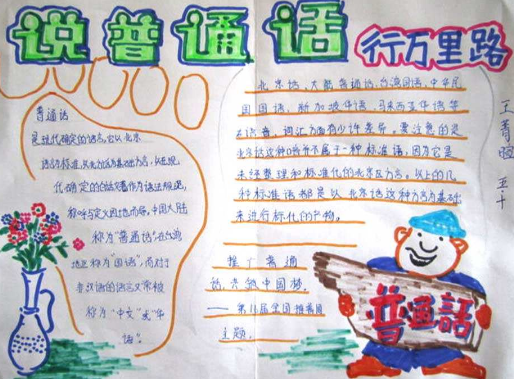 说普通话
行万里路
王菁
五十
普通话
是现代确定的语言,它以北京
语音为标准,
代确定的白话文著作为语法规范,
称呼与定义因地而异,中国大陆
称为“普通话”,在台湾
地区称为“国语”,而对于
言汉语的语言又常被
称为“中文”或“华
语”。
北京话、大陆普通话、台湾国语、中华民
国国语、新加坡华语、马来西亚华语等
在语音、词汇方面有少许差异。要注意的是
北京话这种口语并不属于一种标准语,因为它是
未经整理和标准化的北京区方言,以上的几
种标准语都是以北京话这种方言为基础
来进行标化的产物。
推广普通
话,共筑中国梦。
——第18届全国推普周
主题。
普通話